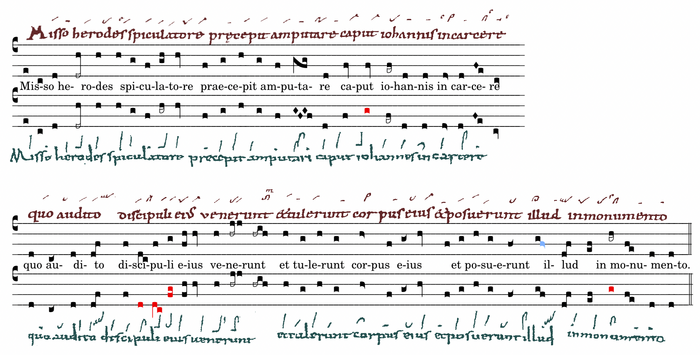 Misso herodes spiculatore precepit amputare caput iohannis incarcere
Mis-so he- ro-des spi-cu-la-to-re prae-ce-pit am-pu-ta- re ca-put io-han-nis in car-ce- re
Misso herodes spiculatore precepit amputari caput iohannes incarcere
quo audito discipuli eius venerunt & tulerunt corpus eius & posuerunt illud inmonumento
quo au- di- to di-sci-pu-li e-ius ve-ne-runt et tu-le-runt cor-pus e-ius et po-su-e-runt il- lud in mo-nu- men-to.
quo audito discipuli eius uenerunt & tulerunt corpus eius & posuerunt illud inmonumento